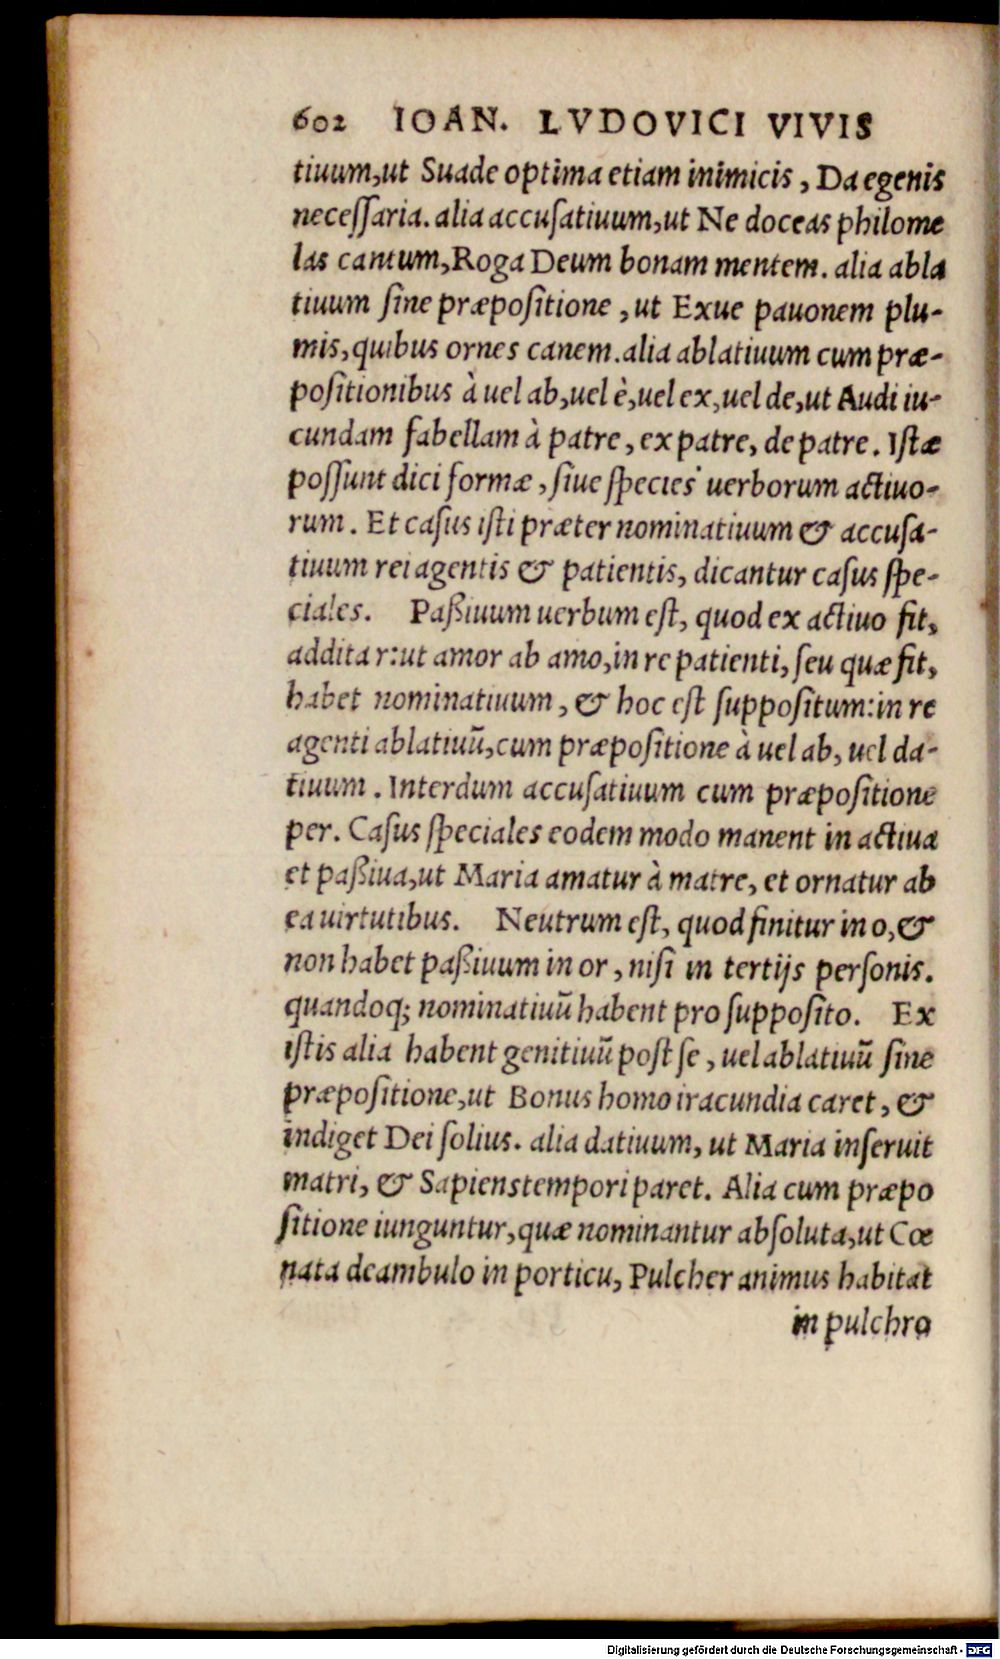 602 IOAN. LVDOVICI VIVIS
tiuum,ut Suade optima etiam inimicis, Da egenis
neceſſaria. alia accuſatiuum,ut Ne doceas philome
las cantum,Roga Deum bonam mentem. alia abla
tiuum ſine præpoſitione, ut Exue pauonem plu-
mis,quibus ornes canem.alia ablatiuum cum præ-
poſitionibus à uel ab,uel è,uel ex,uel de,ut Audi iu-
cundam fabellam à patre, ex patre, de patre. Iſtæ
poſſunt dici formæ, ſiue ſpecies uerborum actiuo-
rum. Et caſus iſti præter nominatiuum & accuſa-
tiuum rei agentis & patientis, dicantur caſus ſpe-
ciales. Paßiuum uerbum eſt, quod ex actiuo fit,
addita r:ut amor ab amo,in re patienti, ſeu quæ fit,
habet nominatiuum, & hoc eſt ſuppoſitum:in re
agenti ablatiuū,cum præpoſitione à uel ab, uel da-
tiuum. Interdum accuſatiuum cum præpoſitione
per. Caſus ſpeciales eodem modo manent in actiua
et paßiua,ut Maria amatur à matre, et ornatur ab
ea uirtutibus. Neutrum eſt, quod finitur in o,&
non habet paßiuum in or, niſi in tertijs perſonis.
quandoq; nominatiuū habent pro ſuppoſito. Ex
iſtis alia habent genitiuū poſt ſe, uel ablatiuū ſine
præpoſitione,ut Bonus homo iracundia caret, &
indiget Dei ſolius. alia datiuum, ut Maria inſeruit
matri, & Sapiens tempori paret. Alia cum præpo
ſitione iunguntur,quæ nominantur abſoluta,ut Cœ
nata deambulo in porticu, Pulcher animus habitat
in pulchro
Digitalisierung gefördert durch die Deutsche Forschungsgemeinschaft - DFG